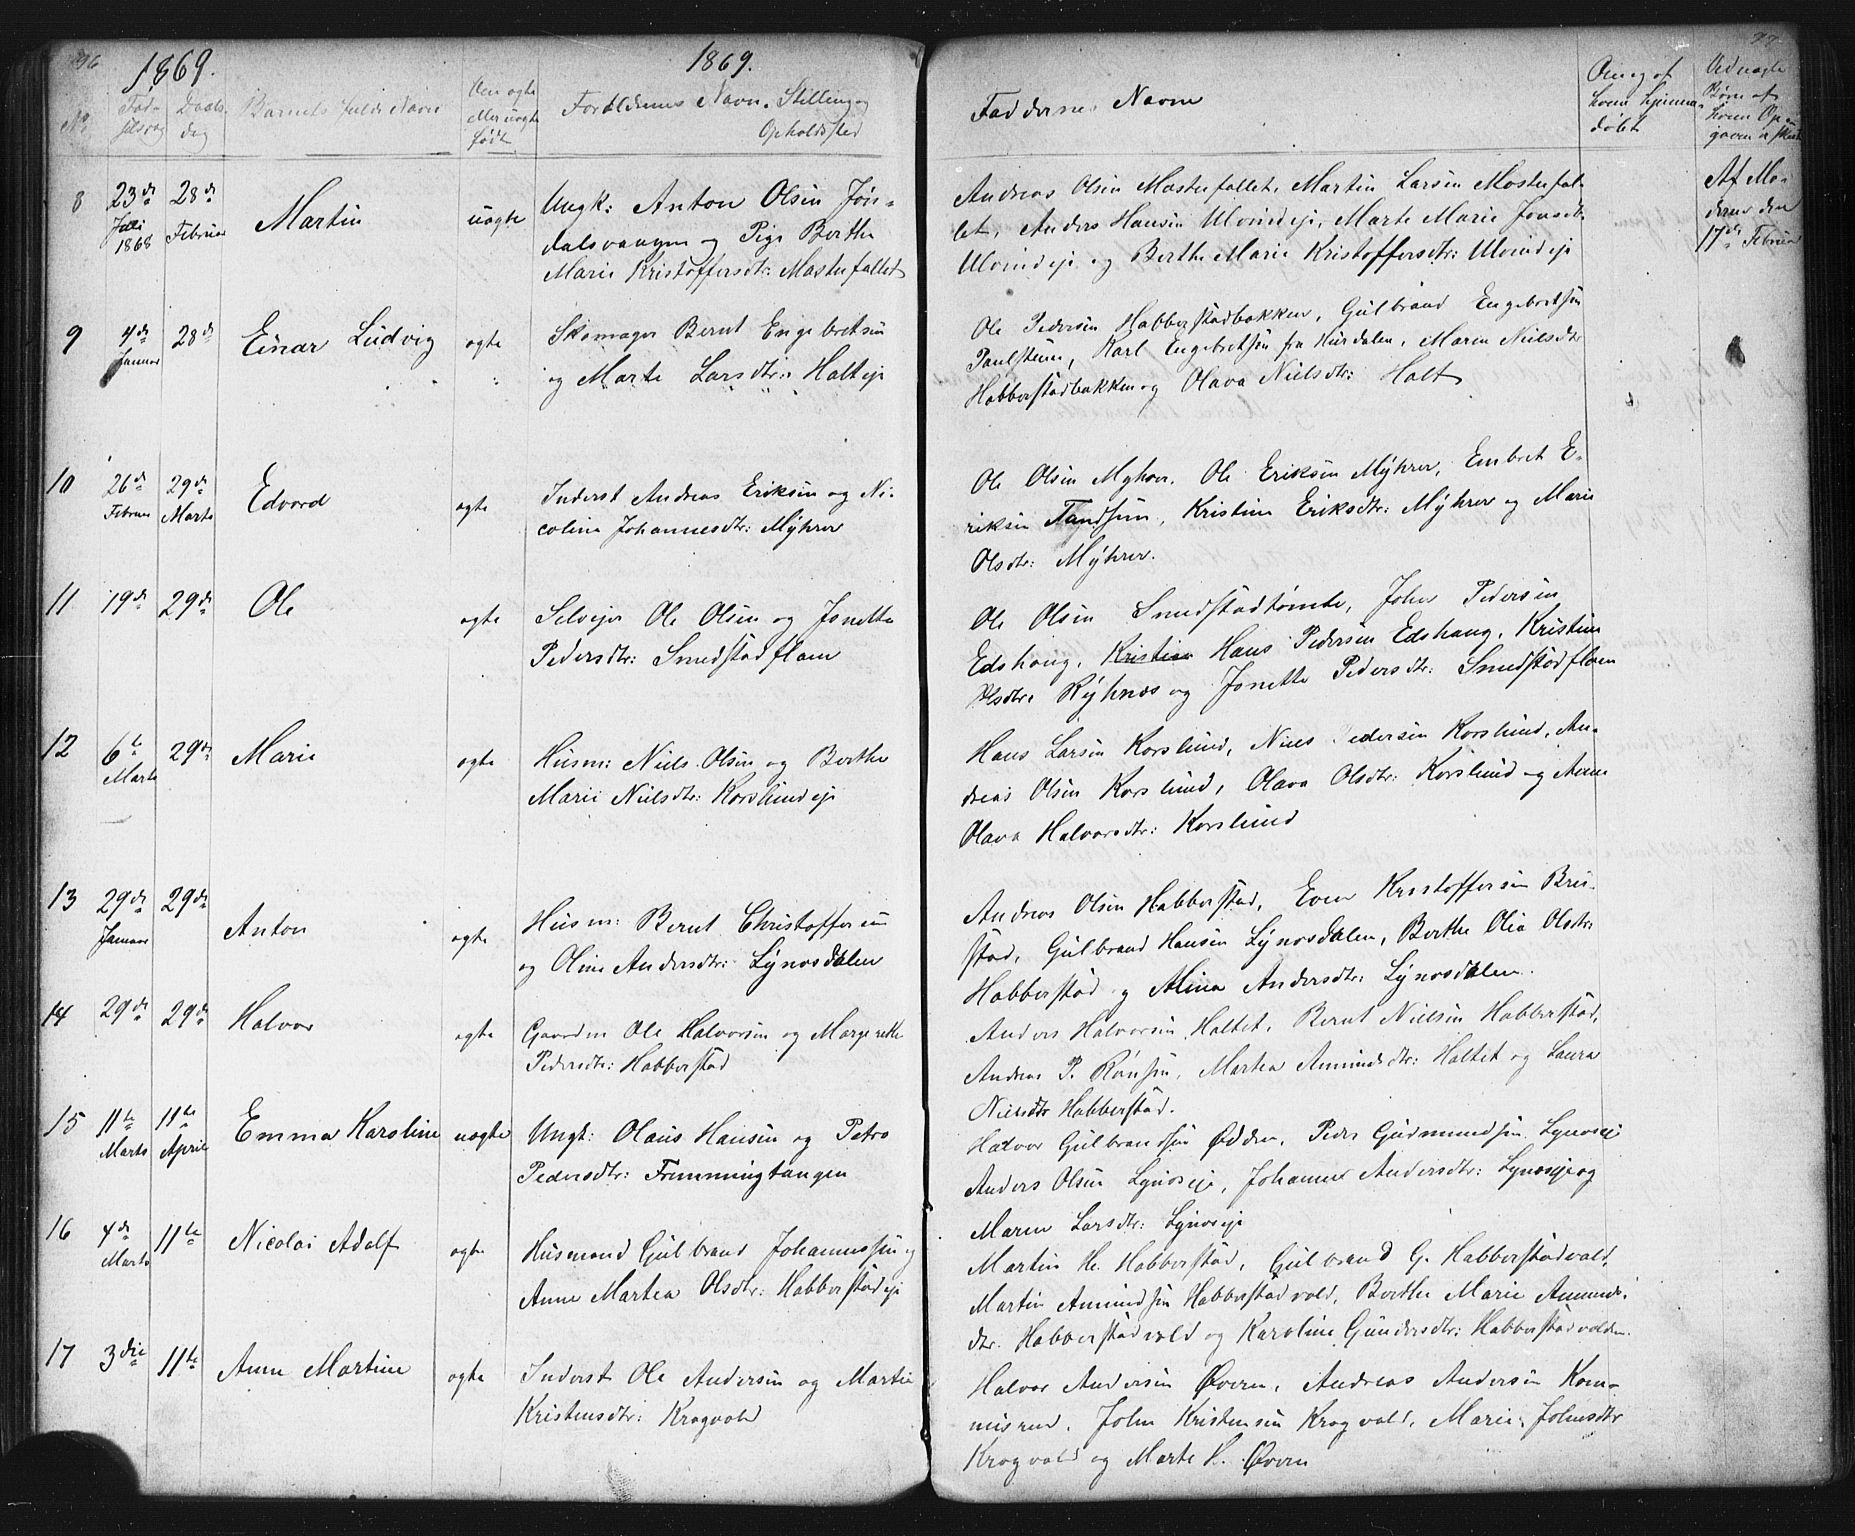 1869.
1869.
No
Fødselsdag
Daabsdag
Barnets fulde Navn
Om ægte eller uægte født
Forældrenes Navn, Stilling og Opholdssted
Faddernes Navne
Om og af hvem hjemmedøbt
8 23de Juli 1868 28de Februar Martin uægte Ungk: Anton Olsen Jøn-
dalsvangen og Pige Berthe
Marie Kristoffersdtr: Masterfallet
Andreas Olsen Masterfallet, Martin Larsen Masterfal-
let, Anders Hansen Ulvineje, Marte Marie Jonsdtr
Ulvineje og Berthe Marie Kristoffersdtr: Ulvineje
Af Mo-
deren den
17de Februar
9 4de Januar 28de Einar Ludvig ægte Skomager Bernt Engebretsen
og Marte Larsdtr: Holteje
Ole Pedersen Habberstadbakken, Gulbrand Engebretsen
Paulsteen, Karl Engebretsen fra Hurdalen, Maren Nielsdtr
Habberstadbakken og Olava Nielsdtr: Holt
10 26de Februar 29de Marts Edvard ægte Inderst Andreas Eriksen og Ni-
coline Johannesdtr: Myhrer
Ole Olsen Myhrer, Ole Eriksen Myhrer, Embret E-
riksen, Kristine Eriksdtr: Myhrer og Marie
Olsdtr: Myhrer.
11 19de 29de Ole ægte Selvejer Ole Olsen og Jonette
Pedersdtr: Smedstadflaen
Ole Olsen Smedstadtømte, John Pedersen
Edshaug, Kristian Hans Pedersen Edshaug, Kristine
Olsdtr: Ryhnæs og Jonette Pedersdtr: Smedstadflaen
12 6te Marts 29de Marie ægte Husm: Niels Olsen og Berthe
Marie Nielsdtr: Korslundeje
Hans Larsen Korslund, Niels Pedersen Korslund, An-
dreas Olsen Korslund, Olava Olsdtr: Korslund og Anne
Olava Halvorsdtr: Korslund
13 29de Januar 29de Anton ægte Husm: Bernt Christoffersen
og Oline Andersdtr: Lynosdalen
Andreas Olsen Habberstad, Even Kristoffersen Bris-
stad, Gulbrand Hansen Lynosdalen, Berthe Olia Olsdtr:
Habberstad og Alina Andersdtr: Lynosdalen.
14 29de 29de Halvor ægte Gaardm Ole Halvorsen og Margrethe
Pedersdtr: Habberstad
Anders Halvorsen Holtet, Bernt Nielsen Habberstad,
Andreas P. Rønsen, Martea Amundsdtr: Holtet og Laura
Nielsdtr Habberstad.
15 11te Marts 11te April Emma Karoline uægte Ungk: Olaus Hansen og Petra
Pedersdtr: Fremmingtangen
Halvor Gulbrandsen Ødden, Peder Gudmundsen Lynoseje
Anders Olsen Lynoseje, Johanne Andersdtr: Lynoseje og
Maren Larsdtr: Lynoseje
16 4de Marts 11te Nicolai Adolf ægte Husmand Gulbrand Johannessen og
Anne Martea Olsdtr: Habberstadeje
Martin H. Habberstad, Gulbrand G. Habberstadvold,
Martin Amundsen Habberstadvold, Berthe Marie Amunds-
dtr. Habberstadvold og Karoline Gundersdtr: Habberstadvolden.
17 3die 11te Anne Martine ægte Inderst Ole Andersen og Martie
Kristensdtr: Krogvold
Halvor Andersen Øveren, Andreas Andersen Kom-
misrud, John Kristensen Krogvold, Marie Johnsdtr
Krogvold og Marte H. Øveren